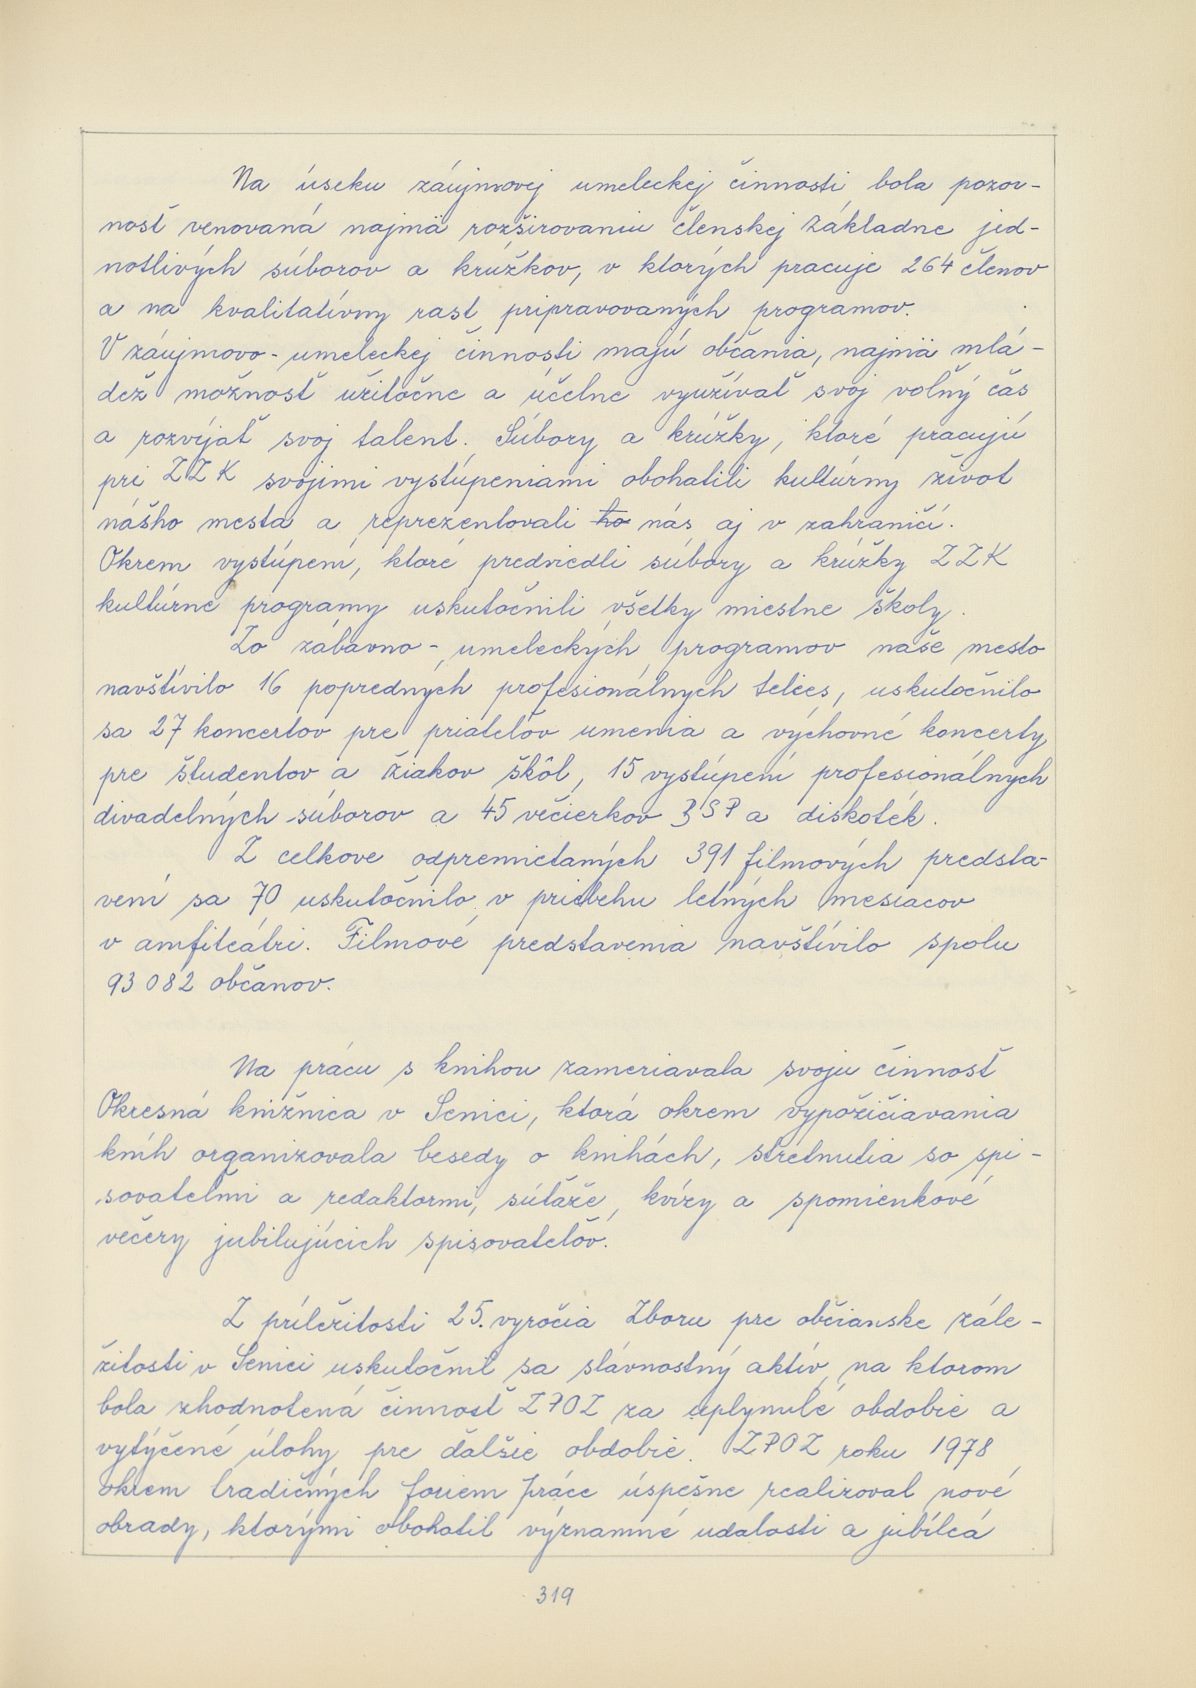 Na úseku záujmovej umeleckej činnosti bola pozor-
nosť venovaná najmä rozširovaniu členskej základne jed-
notlivých súborov a krúžkov, v ktorých pracuje 264 členov
a na kvalitatívny rast pripravovaných programov.
V záujmovo-umeleckej činnosti majú občania, najmä mlá-
dež možnosť užitočne a účelne využívať svoj voľný čas
a rozvíjať svoj talent. Súbory a krúžky, ktoré pracujú
pri ZZK svojimi vystúpeniami obohatili kultúrny život
nášho mesta a reprezentovali ho nás aj v zahraničí.
Okrem vystúpení, ktoré predviedli súbory a krúžky ZZK
kultúrne programy uskutočnili všetky miestne školy.
Zo zábavno-umeleckých programov naše mesto
navštívilo 16 popredných profesionálnych telies, uskutočnilo
sa 27 koncertov pre priateľov umenia a výchovné koncerty
pre študentov a žiakov škôl, 15 vystúpení profesionálnych
divadelných súborov a 45 večierkov BSP a diskoték.
Z celkove odpremietaných 391 filmových predsta-
vení sa 70 uskutočnilo v priebehu letných mesiacov
v amfiteátri. Filmové predstavenia navštívilo spolu
93 082 občanov.
Na prácu s knihou zameriavala svoju činnosť
Okresná knižnica v Senici, ktorá okrem vypožičiavania
kníh organizovala besedy o knihách, stretnutia so spi-
sovateľmi a redaktormi, súťaže, kvízy a spomienkové
večery jubilujúcich spisovateľov.
Z príležitosti 25. vyročia Zboru pre občianske zále-
žitosti v Senici uskutočnil sa slávnostný aktív, na ktorom
bola zhodnotená činnosť ZPOZ za uplynulé obdobie a
vytýčené úlohy pre ďalšie obdobie. ZPOZ roku 1978
okrem tradičných foriem práce úspešne realizoval nové
obrady, ktorými obohatil významné udalosti a jubileá
319